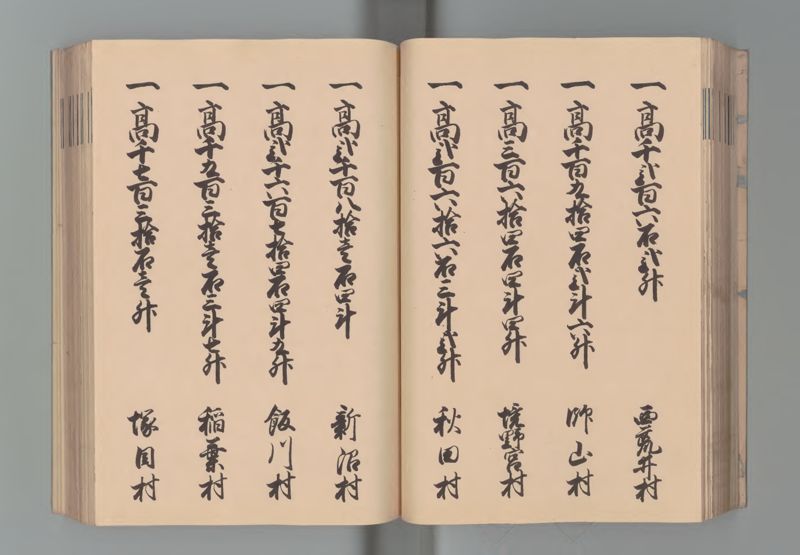 一高千弐百六石弐升 西荒井村
一高千百九拾四石弐斗六升 師山村
一高三百六拾四石四斗四升 境野宮村
一高弐百六拾六石三斗弐升 秋田村
一高弐千百八拾壱石四斗 新沼村
一高弐千六百七拾四石四斗九升 飯川村
一高千五百三拾壱石三斗七升 稲葉村
一高千七百三拾石壱升 塚目村